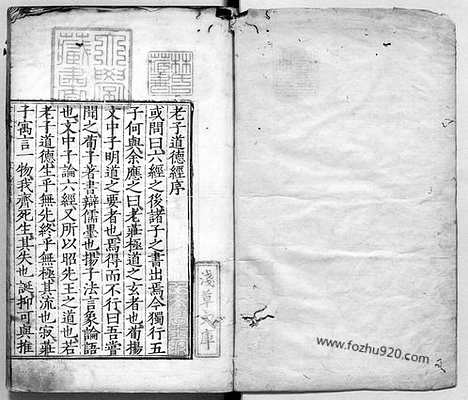 老子道德經序
或問曰六經之後諸子之書出焉今獨行五
子何與余應之曰老莊極道之玄者也荀揚
文中子明道之要者也焉得而不行曰吾嘗
聞之荀子著書辯儒墨也揚子法言象論語
也文中子論六經又所以昭先王之道也若
老子道德生乎無先終乎無極其流也寂莊
子寓言一物我齊死生其失也誕抑可與推
淺草文庫
www.fozhu920.com